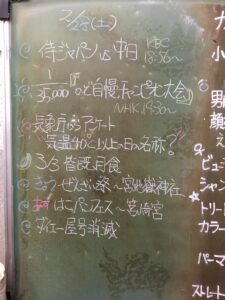 2/28(土)
侍ジャパン vs 中日 KBC 18:56〜
1/35,000 のど自慢チャンピオン大会
NHK 19:30〜
気象庁からアンケート
気温40℃以上の日の名称?
3/3 皆既月食
きょう ぜんざい祭〜宮地嶽神社
あす はこパンフェス〜筥崎宮
ダイエー屋号消滅
カ
小
男
顔
え
ビュ
シャン
トリート
カラー
パーマ
ストレート